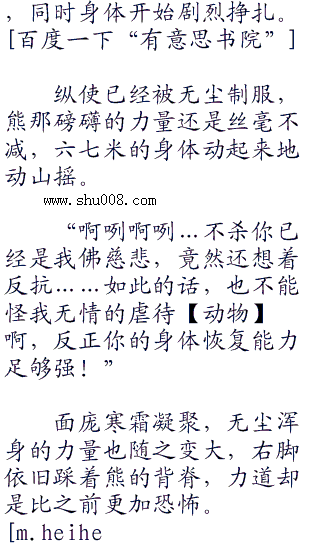 ，同时身体开始剧烈挣扎。
[百度一下“有意思书院”]
纵使已经被无尘制服，
熊那磅礴的力量还是丝毫不
减，六七米的身体动起来地
动山摇。
www.shu008.com
“啊咧啊咧…不杀你已
经是我佛慈悲，竟然还想着
反抗……如此的话，也不能
怪我无情的虐待【动物】
啊，反正你的身体恢复能力
足够强！”
面庞寒霜凝聚，无尘浑
身的力量也随之变大，右脚
依旧踩着熊的背脊，力道却
是比之前更加恐怖。
[m.heihe